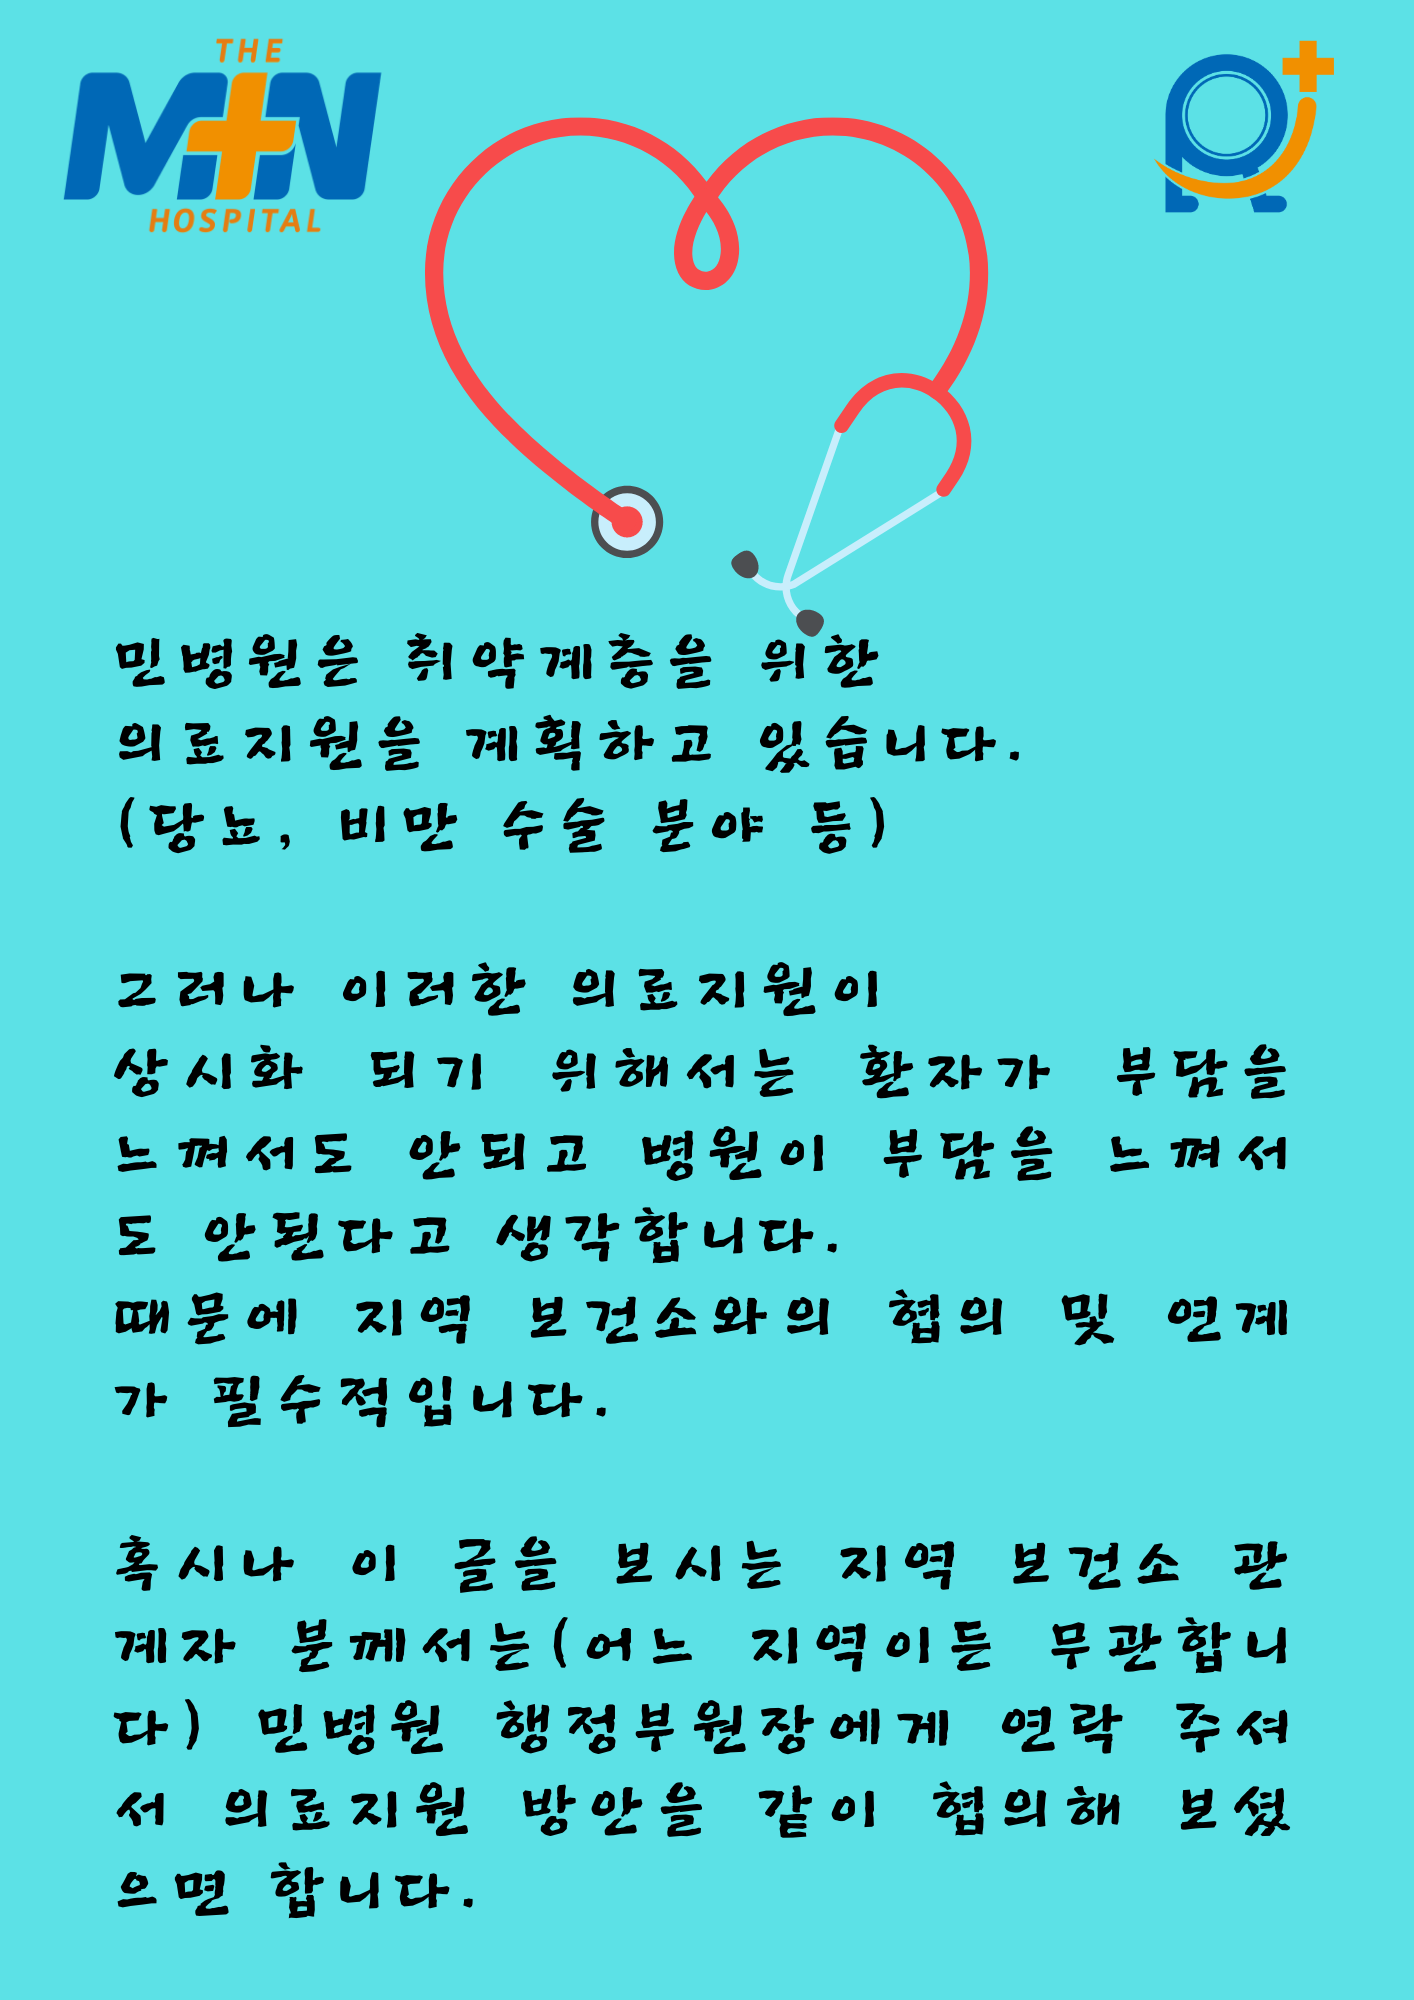 THE
MIN
HOSPITAL
민병원은 취약계층을 위한
의료지원을 계획하고 있습니다.
(당뇨, 비만 수술 분야 등)
그러나 이러한 의료지원이
상시화 되기 위해서는 환자가 부담을
느껴서도 안되고 병원이 부담을 느껴서
도 안된다고 생각합니다.
때문에 지역 보건소와의 협의 및 연계
가 필수적입니다.
혹시나 이 글을 보시는 지역 보건소 관
계자 분께서는(어느 지역이든 무관합니
다) 민병원 행정부원장에게 연락 주셔
서 의료지원 방안을 같이 협의해 보셨
으면 합니다.